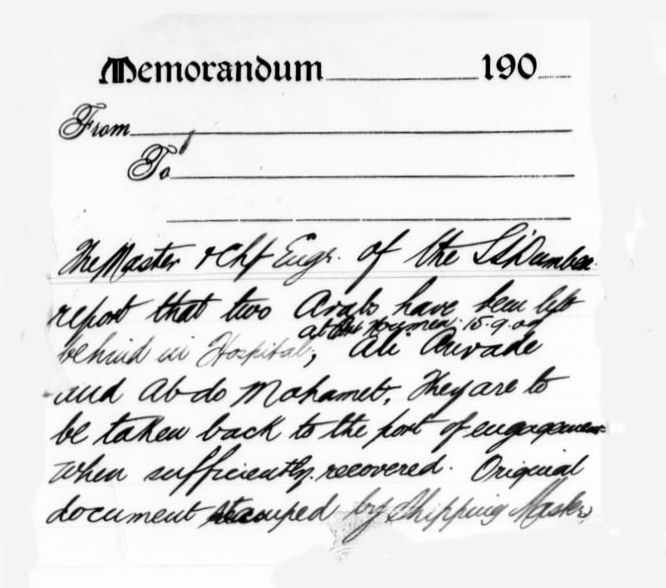 Memorandum 190
From
To
The Master & Chf Engr. of the SS "Dumbea
report that two Arabs have been left
at Port 15.9.09
behind in Hospital, Ali
and Abdo Mohamet. They are to
be taken back to the port of engagement
when sufficiently recovered. Original
document stamped by Shipping Master,